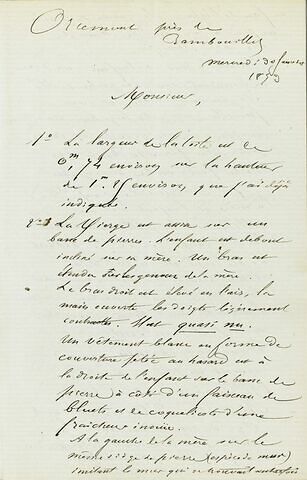 Orcemont près de
Rambouillet
mercredi 30 Janvier
18
Monsieur,
1º La largeur de la toile est de
0m,74 environ, sur la hauteur
de 1m. 25 environ, que j'ai déjà
indiquée.
2º La Vierge est assise sur un
banc de pierres. L'enfant est debout
incliné sur sa mère. Un bras est
étendu sur les genoux de la mère.
Le bras droit est élevé en l'air, la
main ouverte les doigts légèrement
contractés. Il est quasi nu.
Un vêtement blanc en forme de
couverture jetée au hasard est à
la droite de l'enfant sur le banc de
pierre à côté d'un faisceau de
bluets et de coquelicots d'une
fraîcheur inouïe.
A la gauche de la mère sur le
même siège de pierre (espèce de mur)
imitant le mur qui se trouvait autrefois